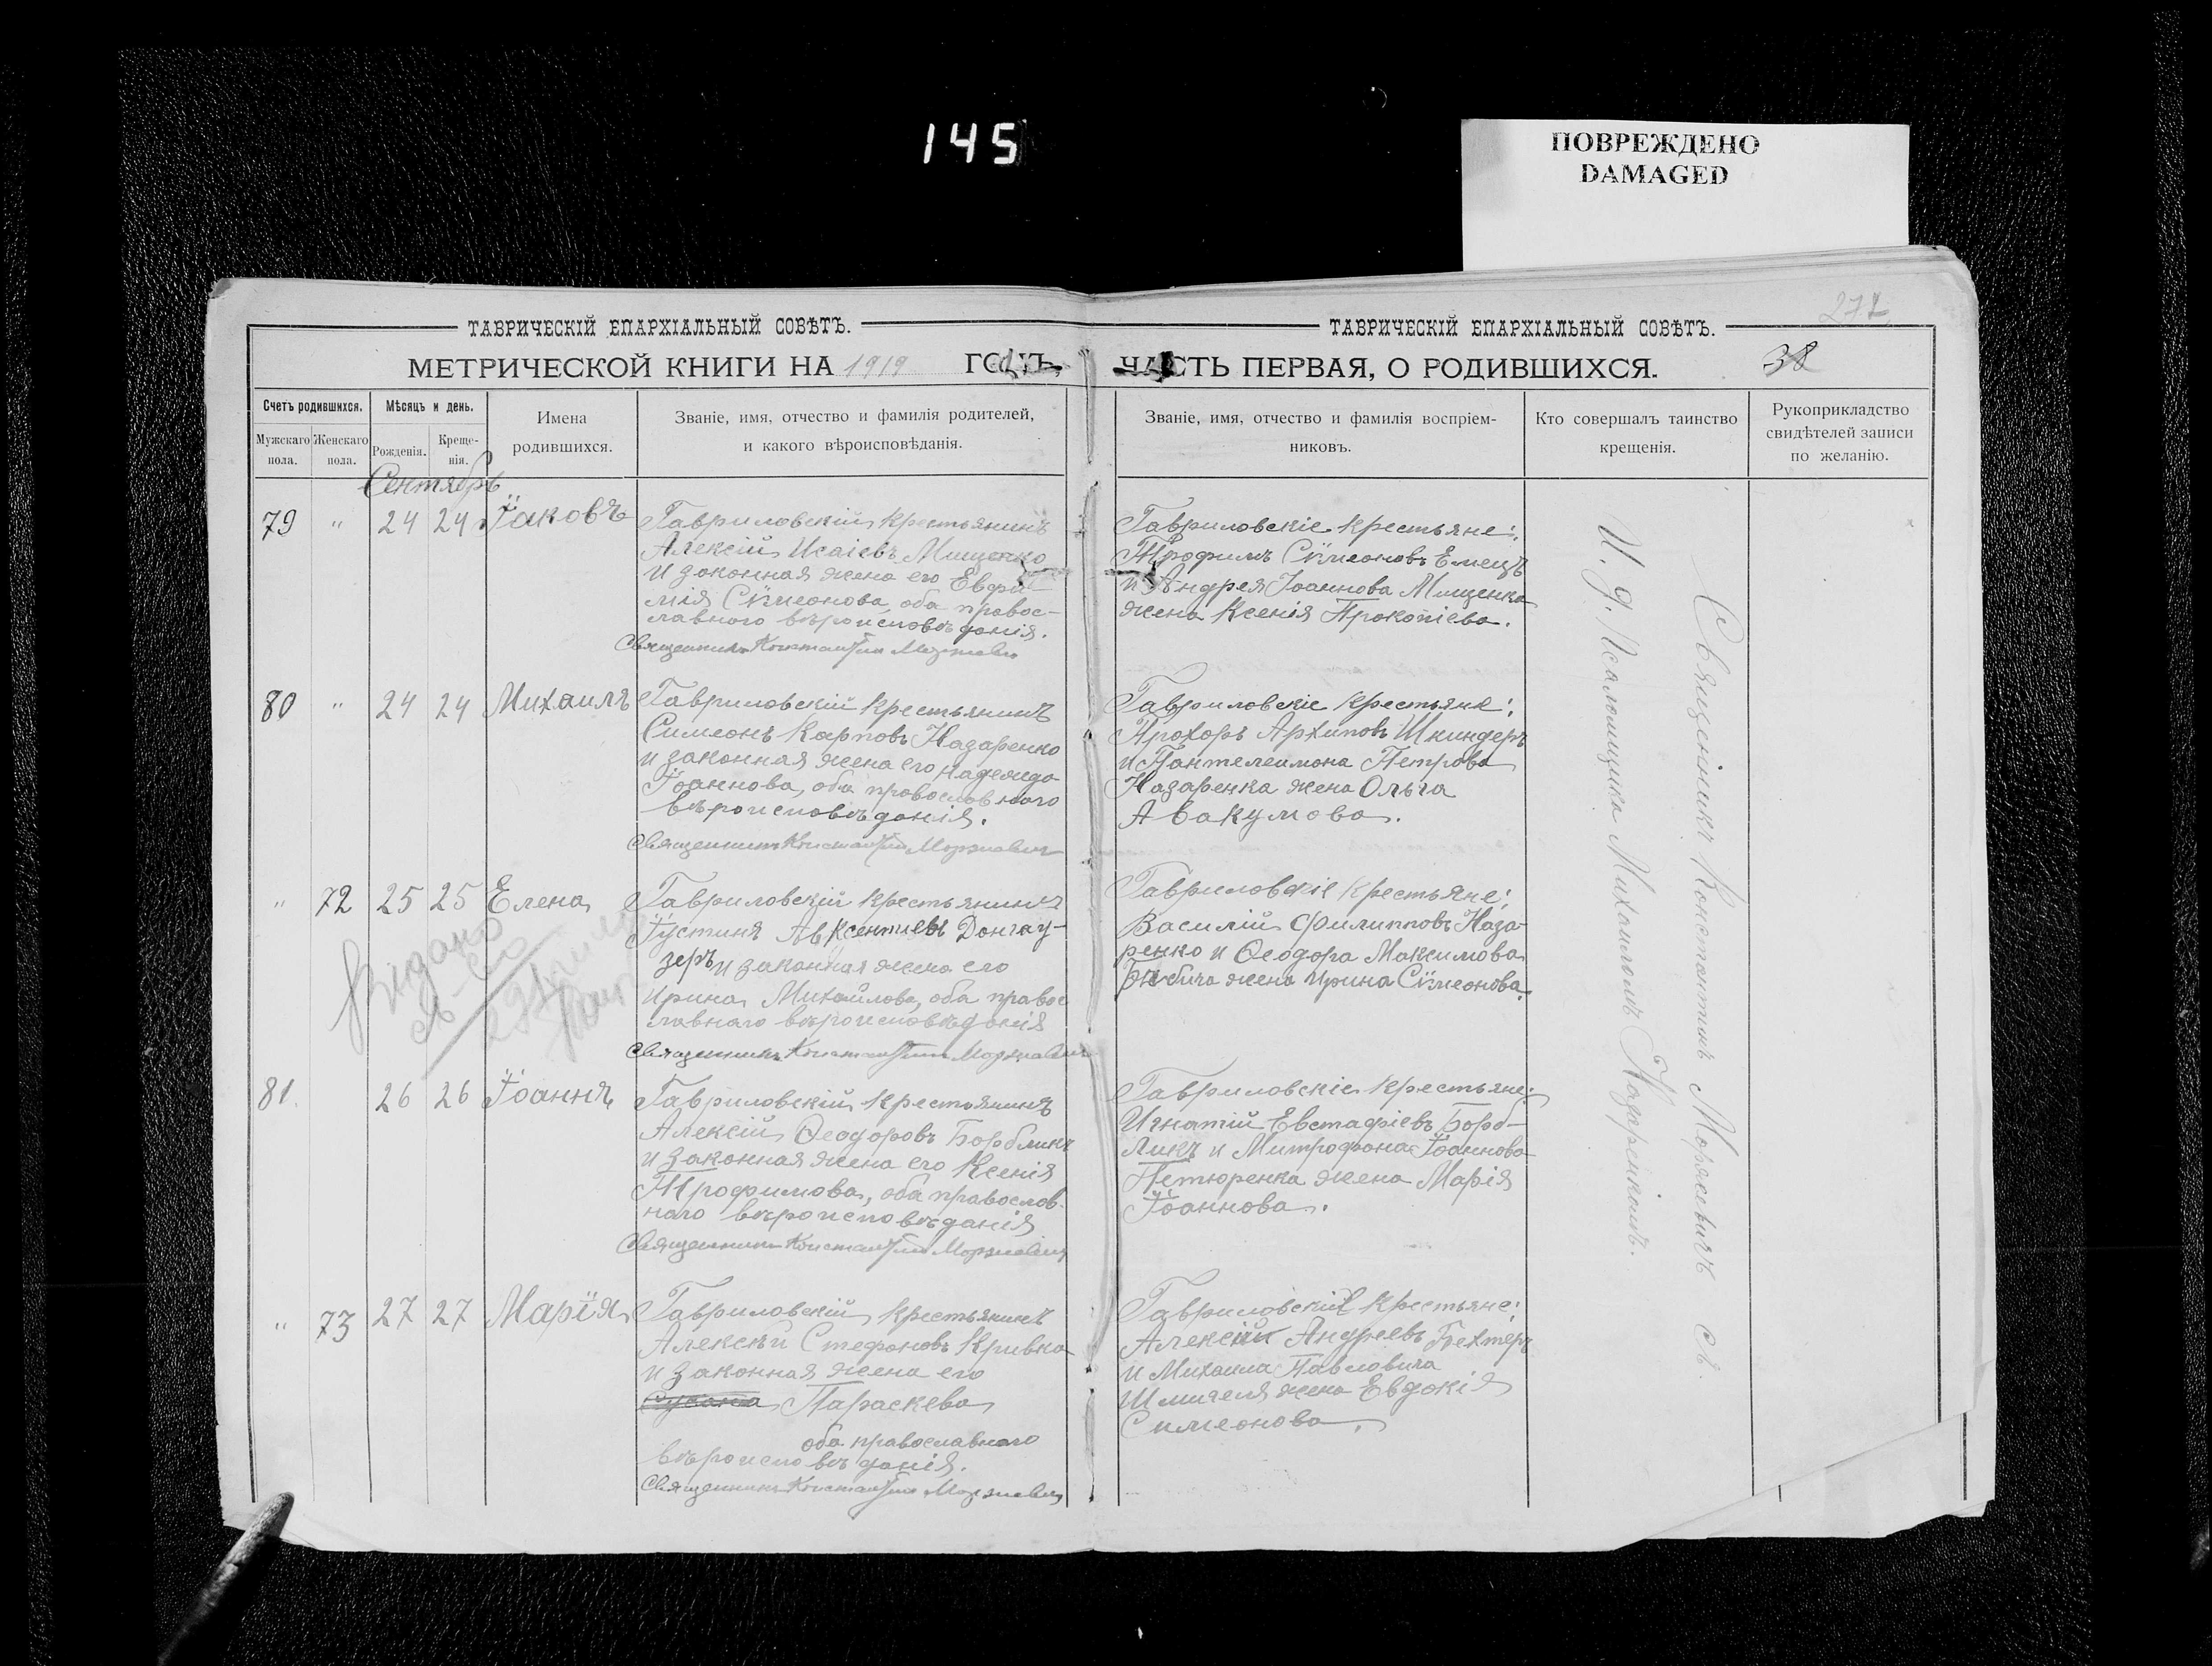 145
ПОВРЕЖДЕНО
DAMAGED
272
ТАВРИЧЕСКІЙ ЕПАРХІАЛЬНЫЙ СОВѢТЪ.
МЕТРИЧЕСКОЙ КНИГИ НА 1919 ГОДЪ,
Счетъ родившихся.
Мужскаго пола.
Женскаго пола.
Мѣсяцъ и день.
Рожденія.
Креще-
нія.
Имена
родившихся.
Званіе, имя, отчество и фамилія родителей,
и какого вѣроисповѣданія.
Сентябрь
79 " 24 24 Іаковъ
Гавриловскій крестьянинъ
Алексій Исаіевъ Мищенко
и законная жена его Евфи-
мія Сѵмеонова, оба правос-
лавного вѣроисповѣданія.
Священникъ Константинъ
80 " 24 24 Михаилъ
Гавриловскій крестьянинъ
Симеонъ Карповъ Назаренко
и законная жена его Надежда
Іоаннова, оба православнаго
вѣроисповѣданія.
Священникъ Константинъ
" 72 25 25 Елена
Выдано
Гавриловскій крестьянинъ
Іустинъ Авксентиевъ Донгау-
зеръ и законная жена его
Ирина Михайлова, оба правос
лавнаго вѣроисповѣданія
Священникъ Константинъ
81. 26 26 Іоаннъ
Гавриловскій крестьянинъ
Алексій Ѳеодоровъ Борбликъ
и законная жена его Ксенія
Трофимова, оба православ-
наго вѣроисповѣданія
Священникъ Константинъ
" 73 27 27 Марія
Гавриловскій крестьянинъ
Алексѣй Стефановъ Кривка
и законная жена его
Параскева
оба православнаго
вѣроисповѣданія.
Священникъ Константинъ
ТАВРИЧЕСКІЙ ЕПАРХІАЛЬНЫЙ СОВѢТЪ.
ЧАСТЬ ПЕРВАЯ, О РОДИВШИХСЯ. 38
Званіе, имя, отчество и фамилія воспріем-
никовъ.
Кто совершалъ таинство
крещенія.
Рукоприкладство
свидѣтелей записи
по желанію.
Гавриловскіе крестьяне:
Трофимъ Сѵмеоновъ Емецъ
и Андрея Іоаннова Мищенка
жена Ксенія Прокопіева.
Гавриловскіе крестьяне:
Прохоръ Архиповъ Шкиндеръ
и Пантелеимона Петрова
Назаренка жена Ольга
Авакумова.
Гавриловскіе крестьяне:
Василій Филипповъ Наза-
ренко и Ѳеодора Максимова
жена Ирина Сѵмеонова.
Гавриловскіе крестьяне:
Игнатій Евстафіевъ Борб-
ликъ и Митрофана Іоаннова
Петюренка жена Марія
Іоаннова.
Гавриловскіе крестьяне:
Алексій Андреевъ Бехтеръ
и Михаила Павловича
Шмигеля жена Евдокія
Симеонова.
Священникъ Константинъ Моржевичъ съ
И. д. Псаломщика Михаиломъ Назаренкомъ.